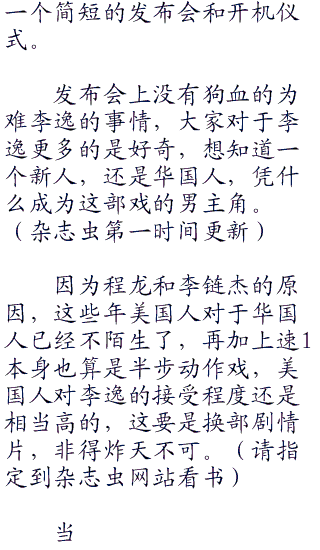 一个简短的发布会和开机仪
式。
发布会上没有狗血的为
难李逸的事情，大家对于李
逸更多的是好奇，想知道一
个新人，还是华国人，凭什
么成为这部戏的男主角。
（杂志虫第一时间更新）
因为程龙和李链杰的原
因，这些年美国人对于华国
人已经不陌生了，再加上速1
本身也算是半步动作戏，美
国人对李逸的接受程度还是
相当高的，这要是换部剧情
片，非得炸天不可。（请指
定到杂志虫网站看书）
当